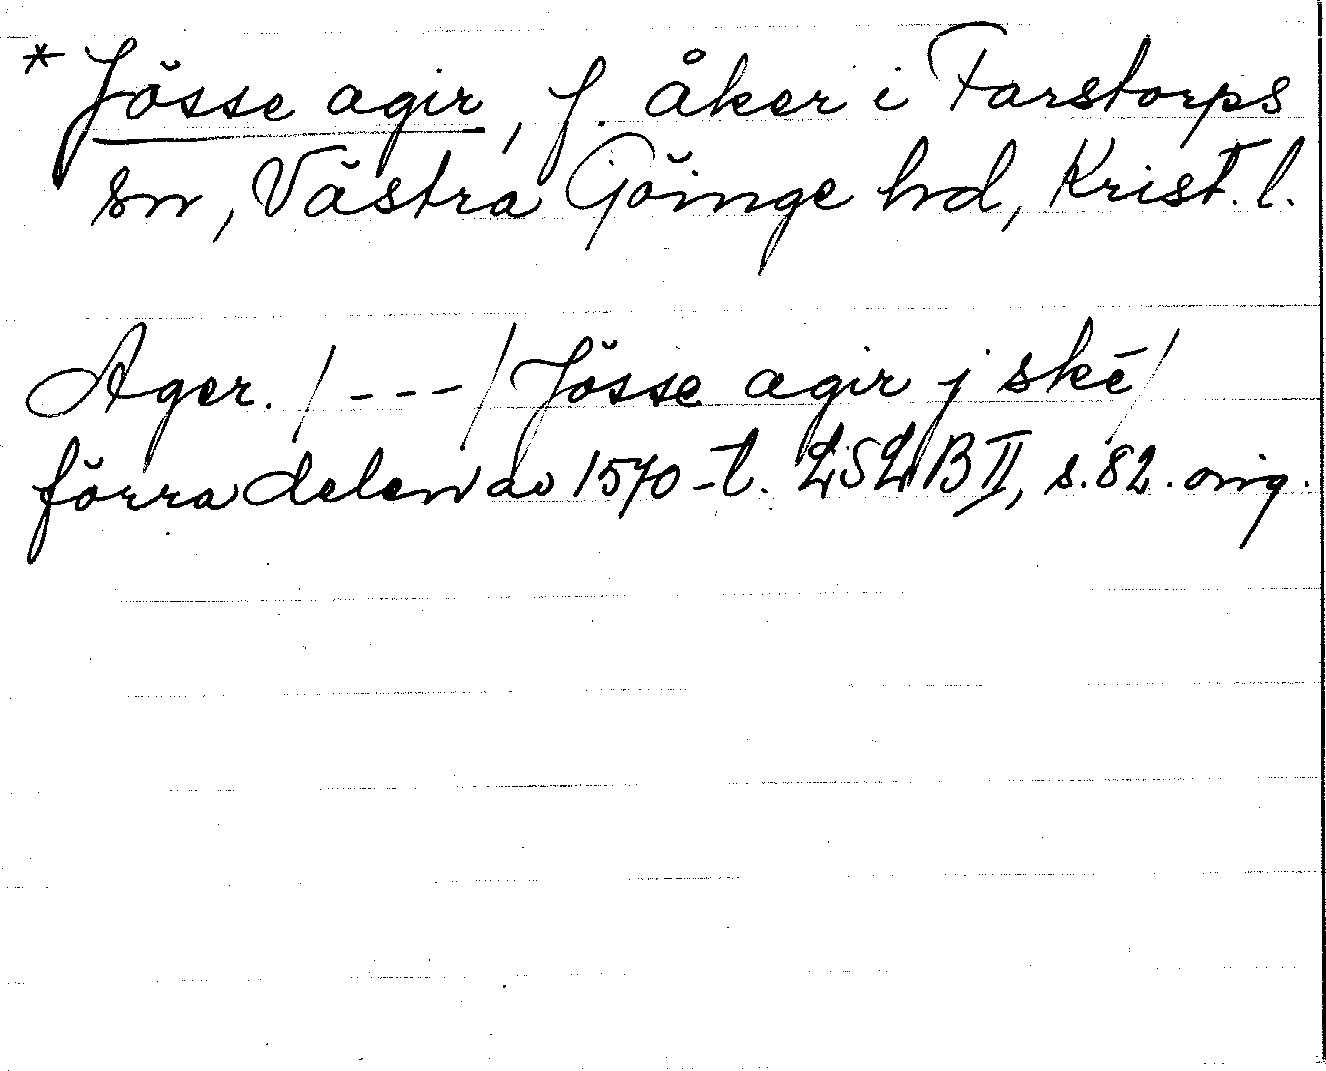 * Jösse agir, f. åker i Farstorps
sn, Västra Göinge hd, Krist. l.
Ager. / --- / Jösse agir j skē /
förra delen av 1570-t. LSLB II, s. 82. orig.